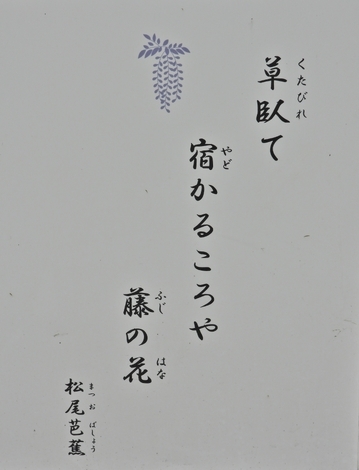 草臥て
くたびれ
宿かるころや
やど
藤の花
ふじ はな
松尾芭蕉
まつ お ばしょう